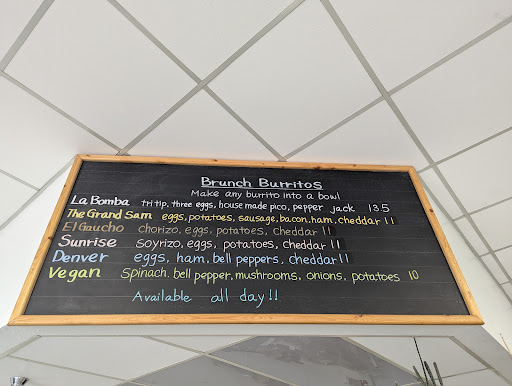 Brunch Burritos
Make any burrito into a bowl
La Bomba tri tip, three eggs, house made pico, pepper jack 13.5
The Grand Sam eggs, potatoes, sausage, bacon, ham, cheddar 11
El Gaucho chorizo, eggs, potatoes, cheddar 11
Sunrise soyrizo, eggs, potatoes, cheddar 11
Denver eggs, ham, bell peppers, cheddar 11
Vegan Spinach, bell pepper, mushrooms, onions, potatoes 10
Available all day!!